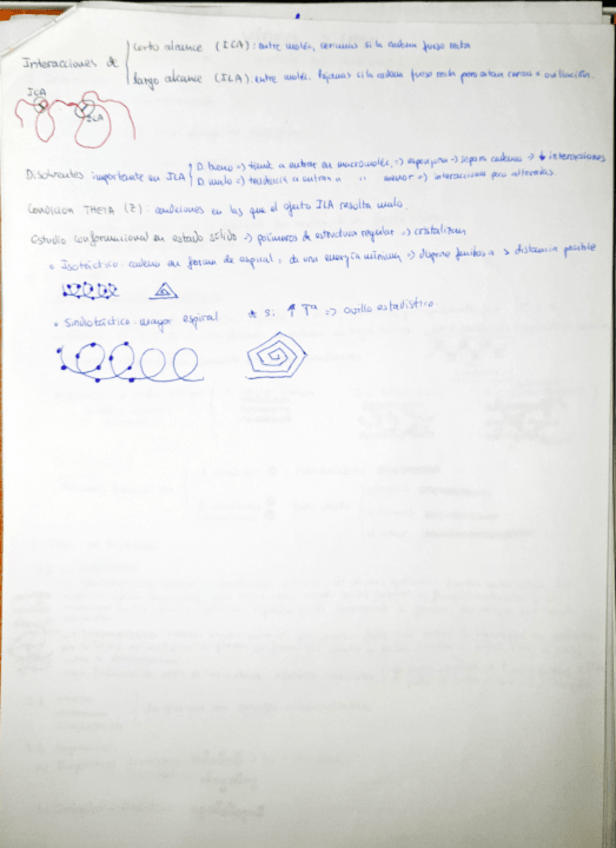 Interacciones de
Corto alcance (ICA): entre moléc. cercanas si la cadena fuese recta
Largo alcance (ILA): entre moléc. lejanas si la cadena fuese recta pero están cerca x ovillación.
ICA
ILA
Disolventes importante en ILA
D. bueno => tiende a entrar en macromoléc. => esponjosa -> separa cadenas -> ↓ interacciones
D. malo => tendencia a entrar a " menor => interacciones poco alteradas.
Condición THETA (Z): condiciones en las que el efecto ILA resulta nulo.
Estudio conformacional en estado sólido => polímeros de estructura regular => cristalizan
• Isotáctico: cadena en forma de espiral, da una energía mínima => dispone fenilos a > distancia posible
• Sindiotáctico: mayor espiral * Si ↑ Tª => ovillo estadístico